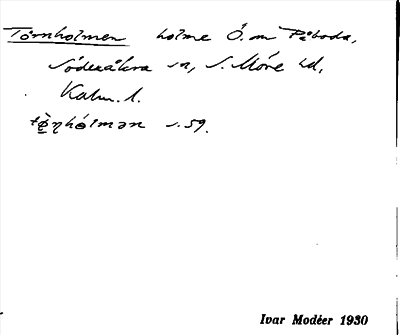 Törnholmen holme Ö. om Påboda,
Söderåkra sn, S. Möre hd,
Kalm. l.
tö̀ṇhólmən s. 59.
Ivar Modéer 1930